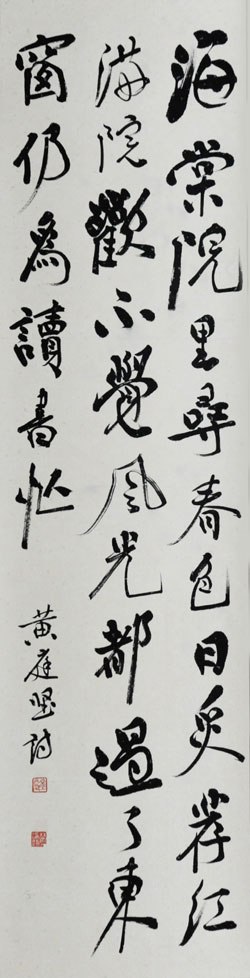 海棠院里尋春色日炙荐红
满院歡不覺风光都過了東
窗仍為讀書忙
黄庭堅詩